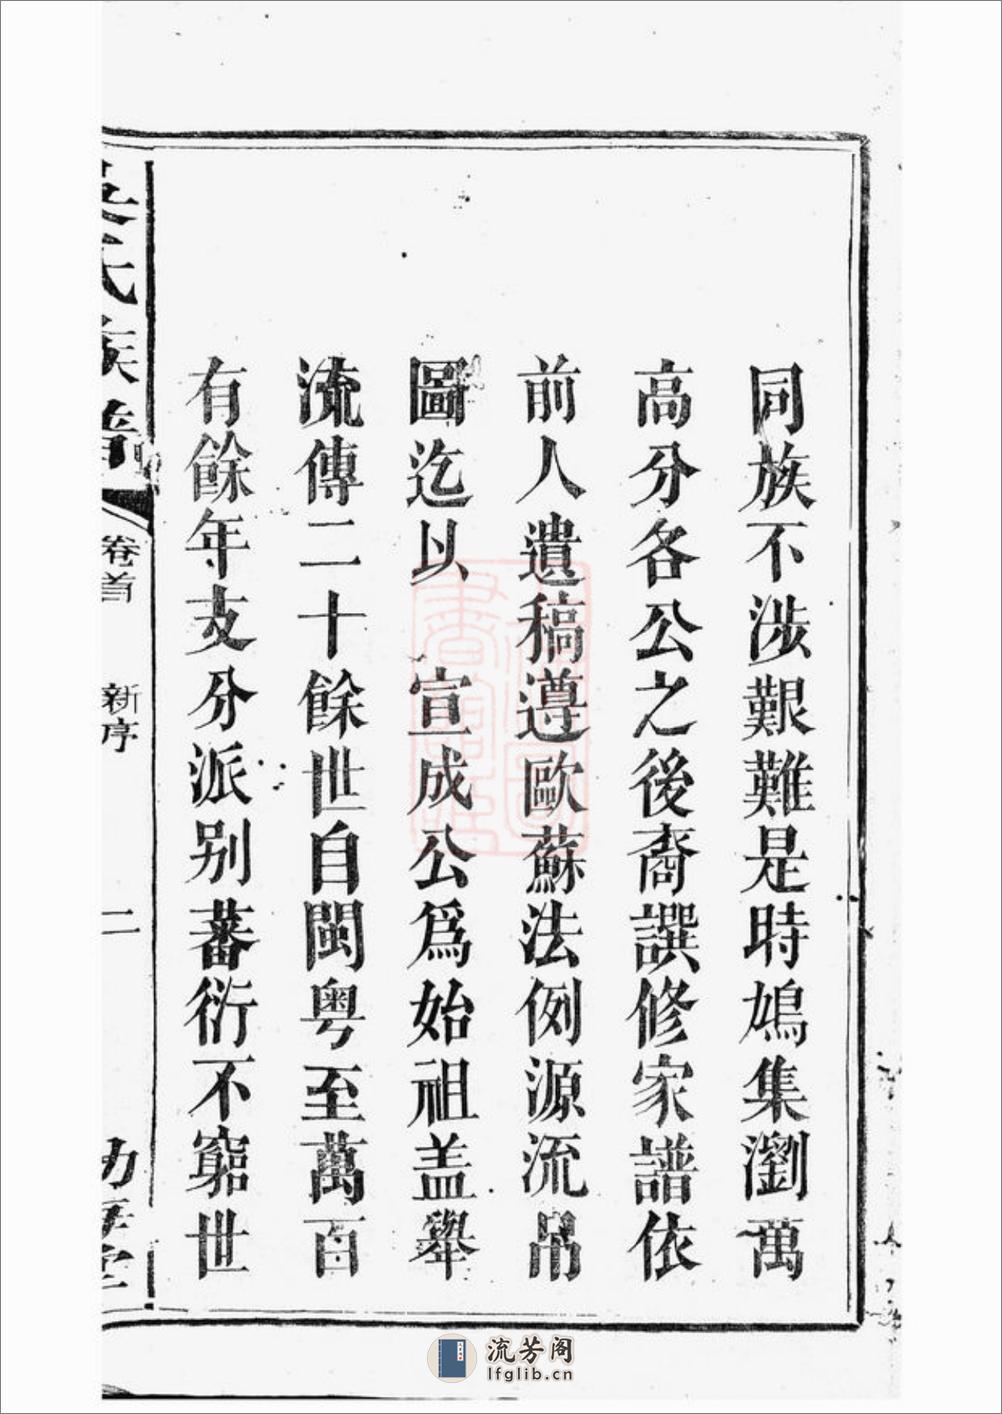 同族不涉艱難是時鳩集瀏萬
高分各公之後裔譔修家譜依
前人遺稿遵歐蘇法例源流吊
圖迄以 宣成公爲始祖盖舉
流傳二十餘世自閩粤至萬百
有餘年支分派别蕃衍不窮世
氏族譜
卷首
新序
二
流芳阁
lfglib.cn